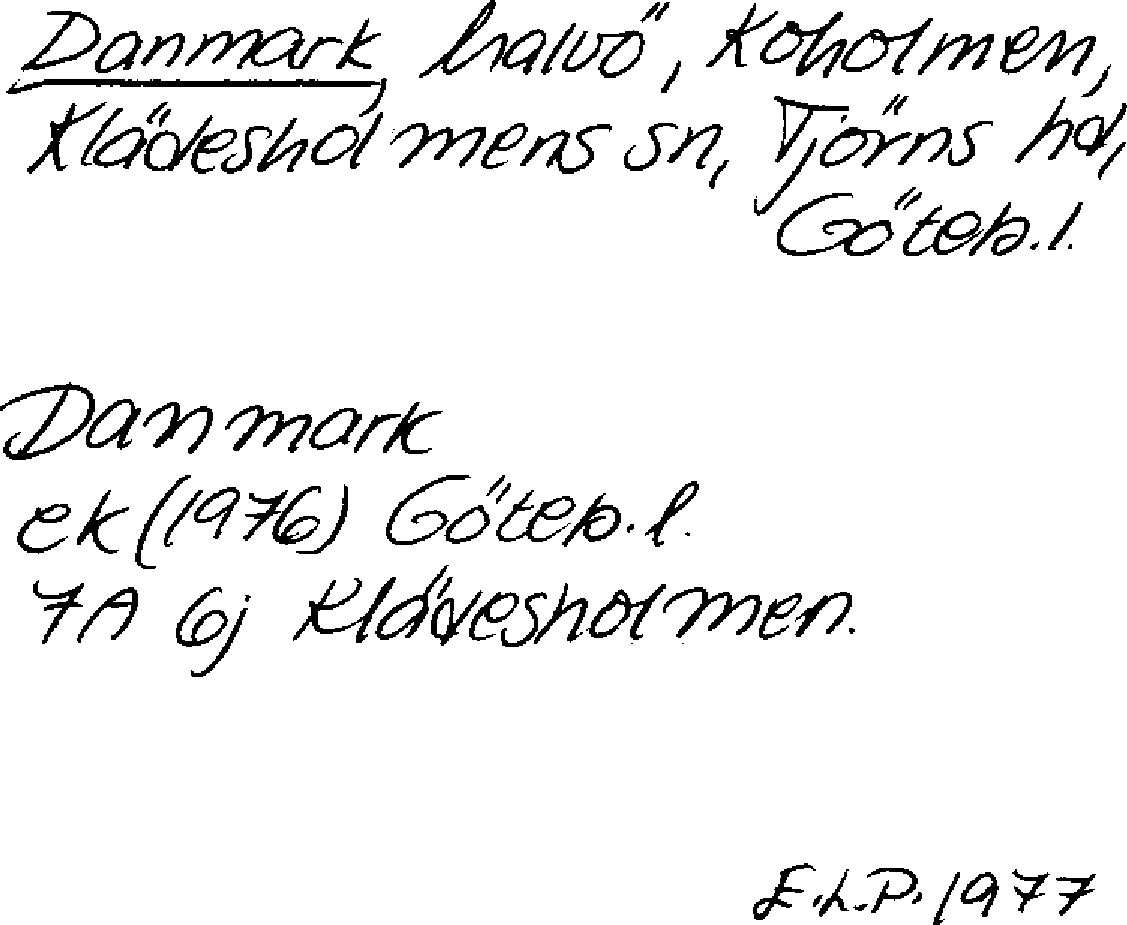 Danmark, halvö, Koholmen,
Klädesholmens sn, Tjörns hd,
Göteb.l.
Danmark
ek (1976) Göteb.l.
7A 6j Klädesholmen.
E.L.P. 1977